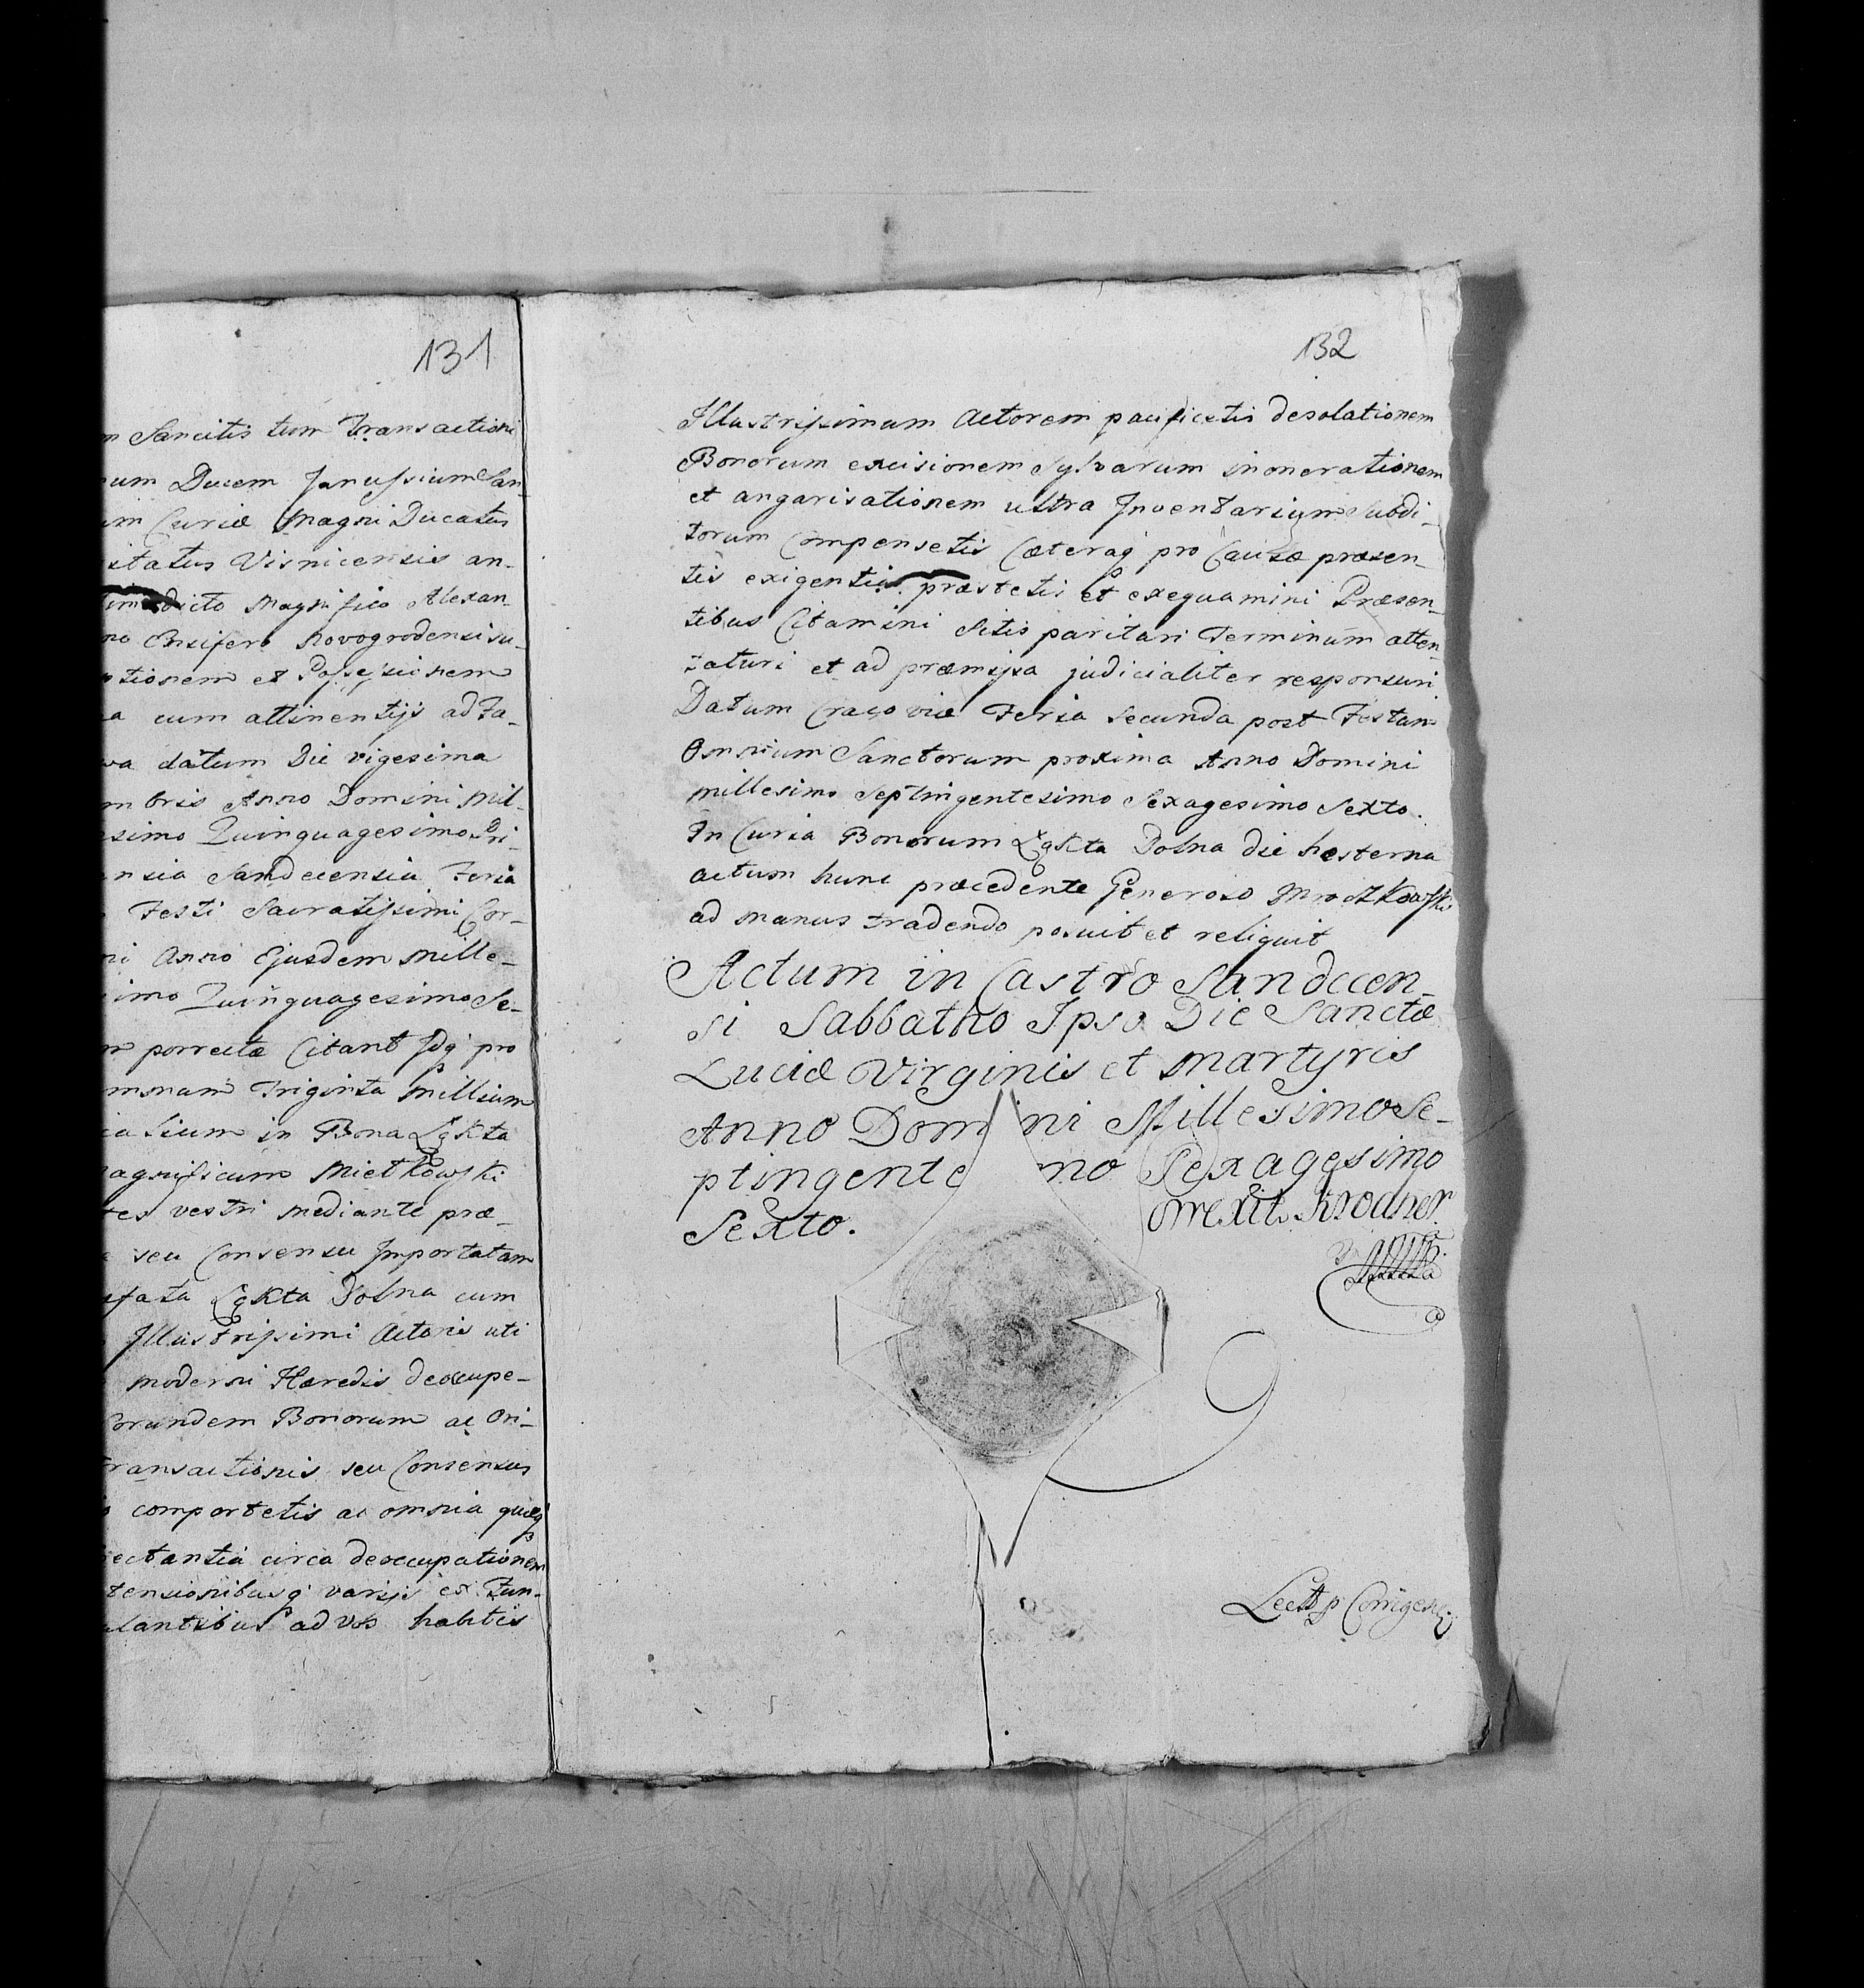 131
m Sancitis tum Transactioni
um Ducem Janussium San-
im Curiæ Magni Ducatus
itatus Visnicensis an-
dicto Magnifico Alexan-
no Ensifero Novogrodensi su-
tionem et Possessionem
a cum attinentijs ad Fa-
va datum Die vigesima
mbris Anno Domini Mil-
esimo Quinquagesimo Pri-
nsia Sandecensia Feria
Festi Sacratissimi Cor-
ni Anno Ejusdem Mille-
imo Quinquagesimo Se-
m porrecta Citant Idq' pro
mmam Triginta Millium
ialium in Bona Łąkta
agnificum Mietkowski
tes vestri mediante præ-
a seu Consensu Importatam
efata Łąkta Dolna cum
Illustrissimi Actoris uti
moderni Hæredis deoccupe-
Eorundem Bonorum ac Ori-
Transactionis seu Consensus
comportetis ac omnia quæq
ectantia circa deoccupationem
tensionibusq' varijs ex Fun-
ulantibus ad vos habitis
132
Illustrissimum Actorem pacificetis desolationem
Bonorum excisionem Sylvarum inonerationem
et angarisationem ultra Inventarium Subdi-
torum Compensetis Cæteraq' pro Causæ præsen-
tis exigentia præstetis et exequamini Præsen-
tibus Citamini Sitis paritari Terminum atten-
taturi et ad præmissa judicialiter responsuri.
Datum Cracoviæ Feria Secunda post Festum
Omnium Sanctorum proxima Anno Domini
Millesimo Septingentesimo Sexagesimo Sexto.
In Curia Bonorum Łąkta Dolna die hesterna
actum hunc præcedente Generoso Mroczkowski
ad manus tradendo posuit et reliquit
Actum in Castro Sandecen-
si Sabbatho Ipso Die Sanctæ
Luciæ Virginis et Martyris
Anno Domini Millesimo Se-
ptingente mo Sexagesimo
Sexto.
Lect p Corrigen